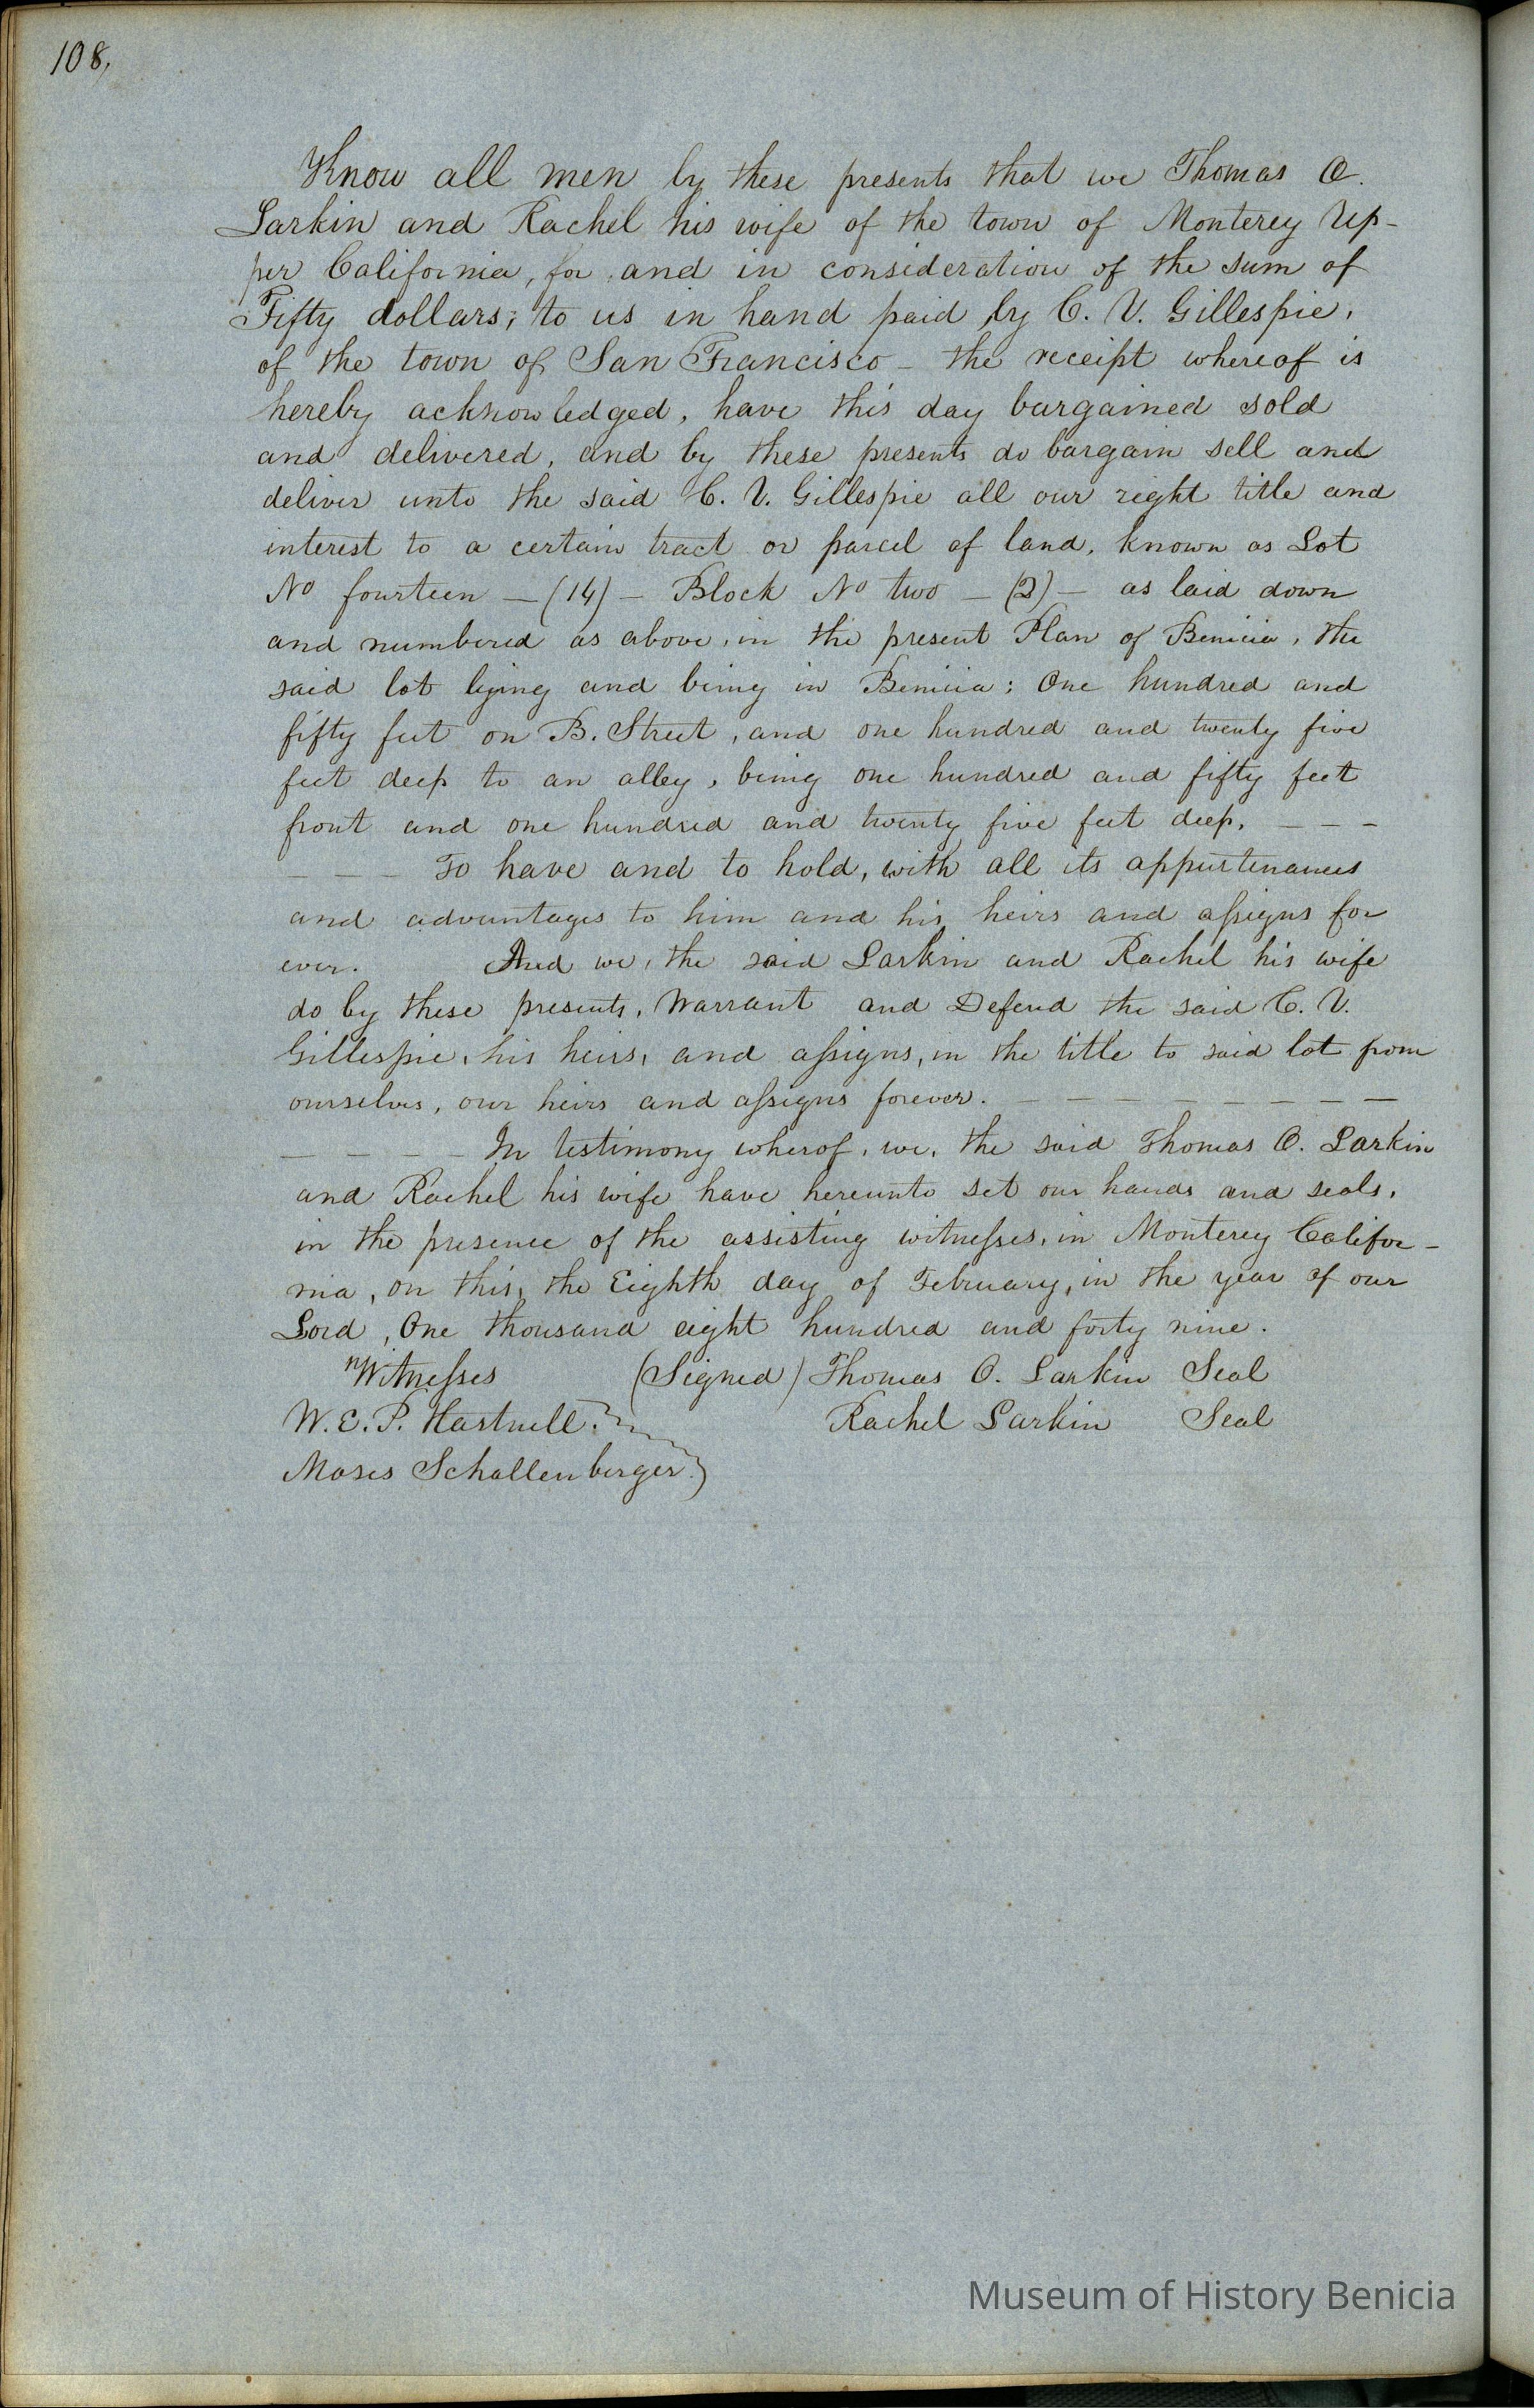 108,
Know all men by these presents that we Thomas O.
Larkin and Rachel his wife of the town of Monterey Up-
per California, for and in consideration of the sum of
Fifty dollars; to us in hand paid by C. V. Gillespie,
of the town of San Francisco - the receipt whereof is
hereby acknowledged, have this day bargained sold
and delivered, and by these presents do bargain sell and
deliver unto the said C. V. Gillespie all our right title and
interest to a certain tract or parcel of land, known as Lot
No fourteen - (14) - Block No two - (2) - as laid down
and numbered as above, in the present Plan of Benicia, the
said lot lying and being in Benicia; One hundred and
fifty feet on B. Street, and one hundred and twenty five
feet deep to an alley, being one hundred and fifty feet
front and one hundred and twenty five feet deep, - - -
- - - To have and to hold, with all its appurtenances
and advantages to him and his heirs and aſsigns for
ever. And we, the said Larkin and Rachel his wife
do by these presents, Warrant and Defend the said C. V.
Gillespie, his heirs, and aſsigns, in the title to said lot from
ourselves, our heirs and aſsigns forever. - - - - - - - -
- - - - In testimony wherof, we, the said Thomas O. Larkin
and Rachel his wife have hereunto set our hands and seals,
in the presence of the assisting witneſses, in Monterey Califor-
nia, on this, the Eighth day of February, in the year of our
Lord, One thousand eight hundred and forty nine.
Witneſses (Signed) Thomas O. Larkin Seal
W. E. P. Hartnell. Rachel Larkin Seal
Moses Schallenberger.
Museum of History Benicia